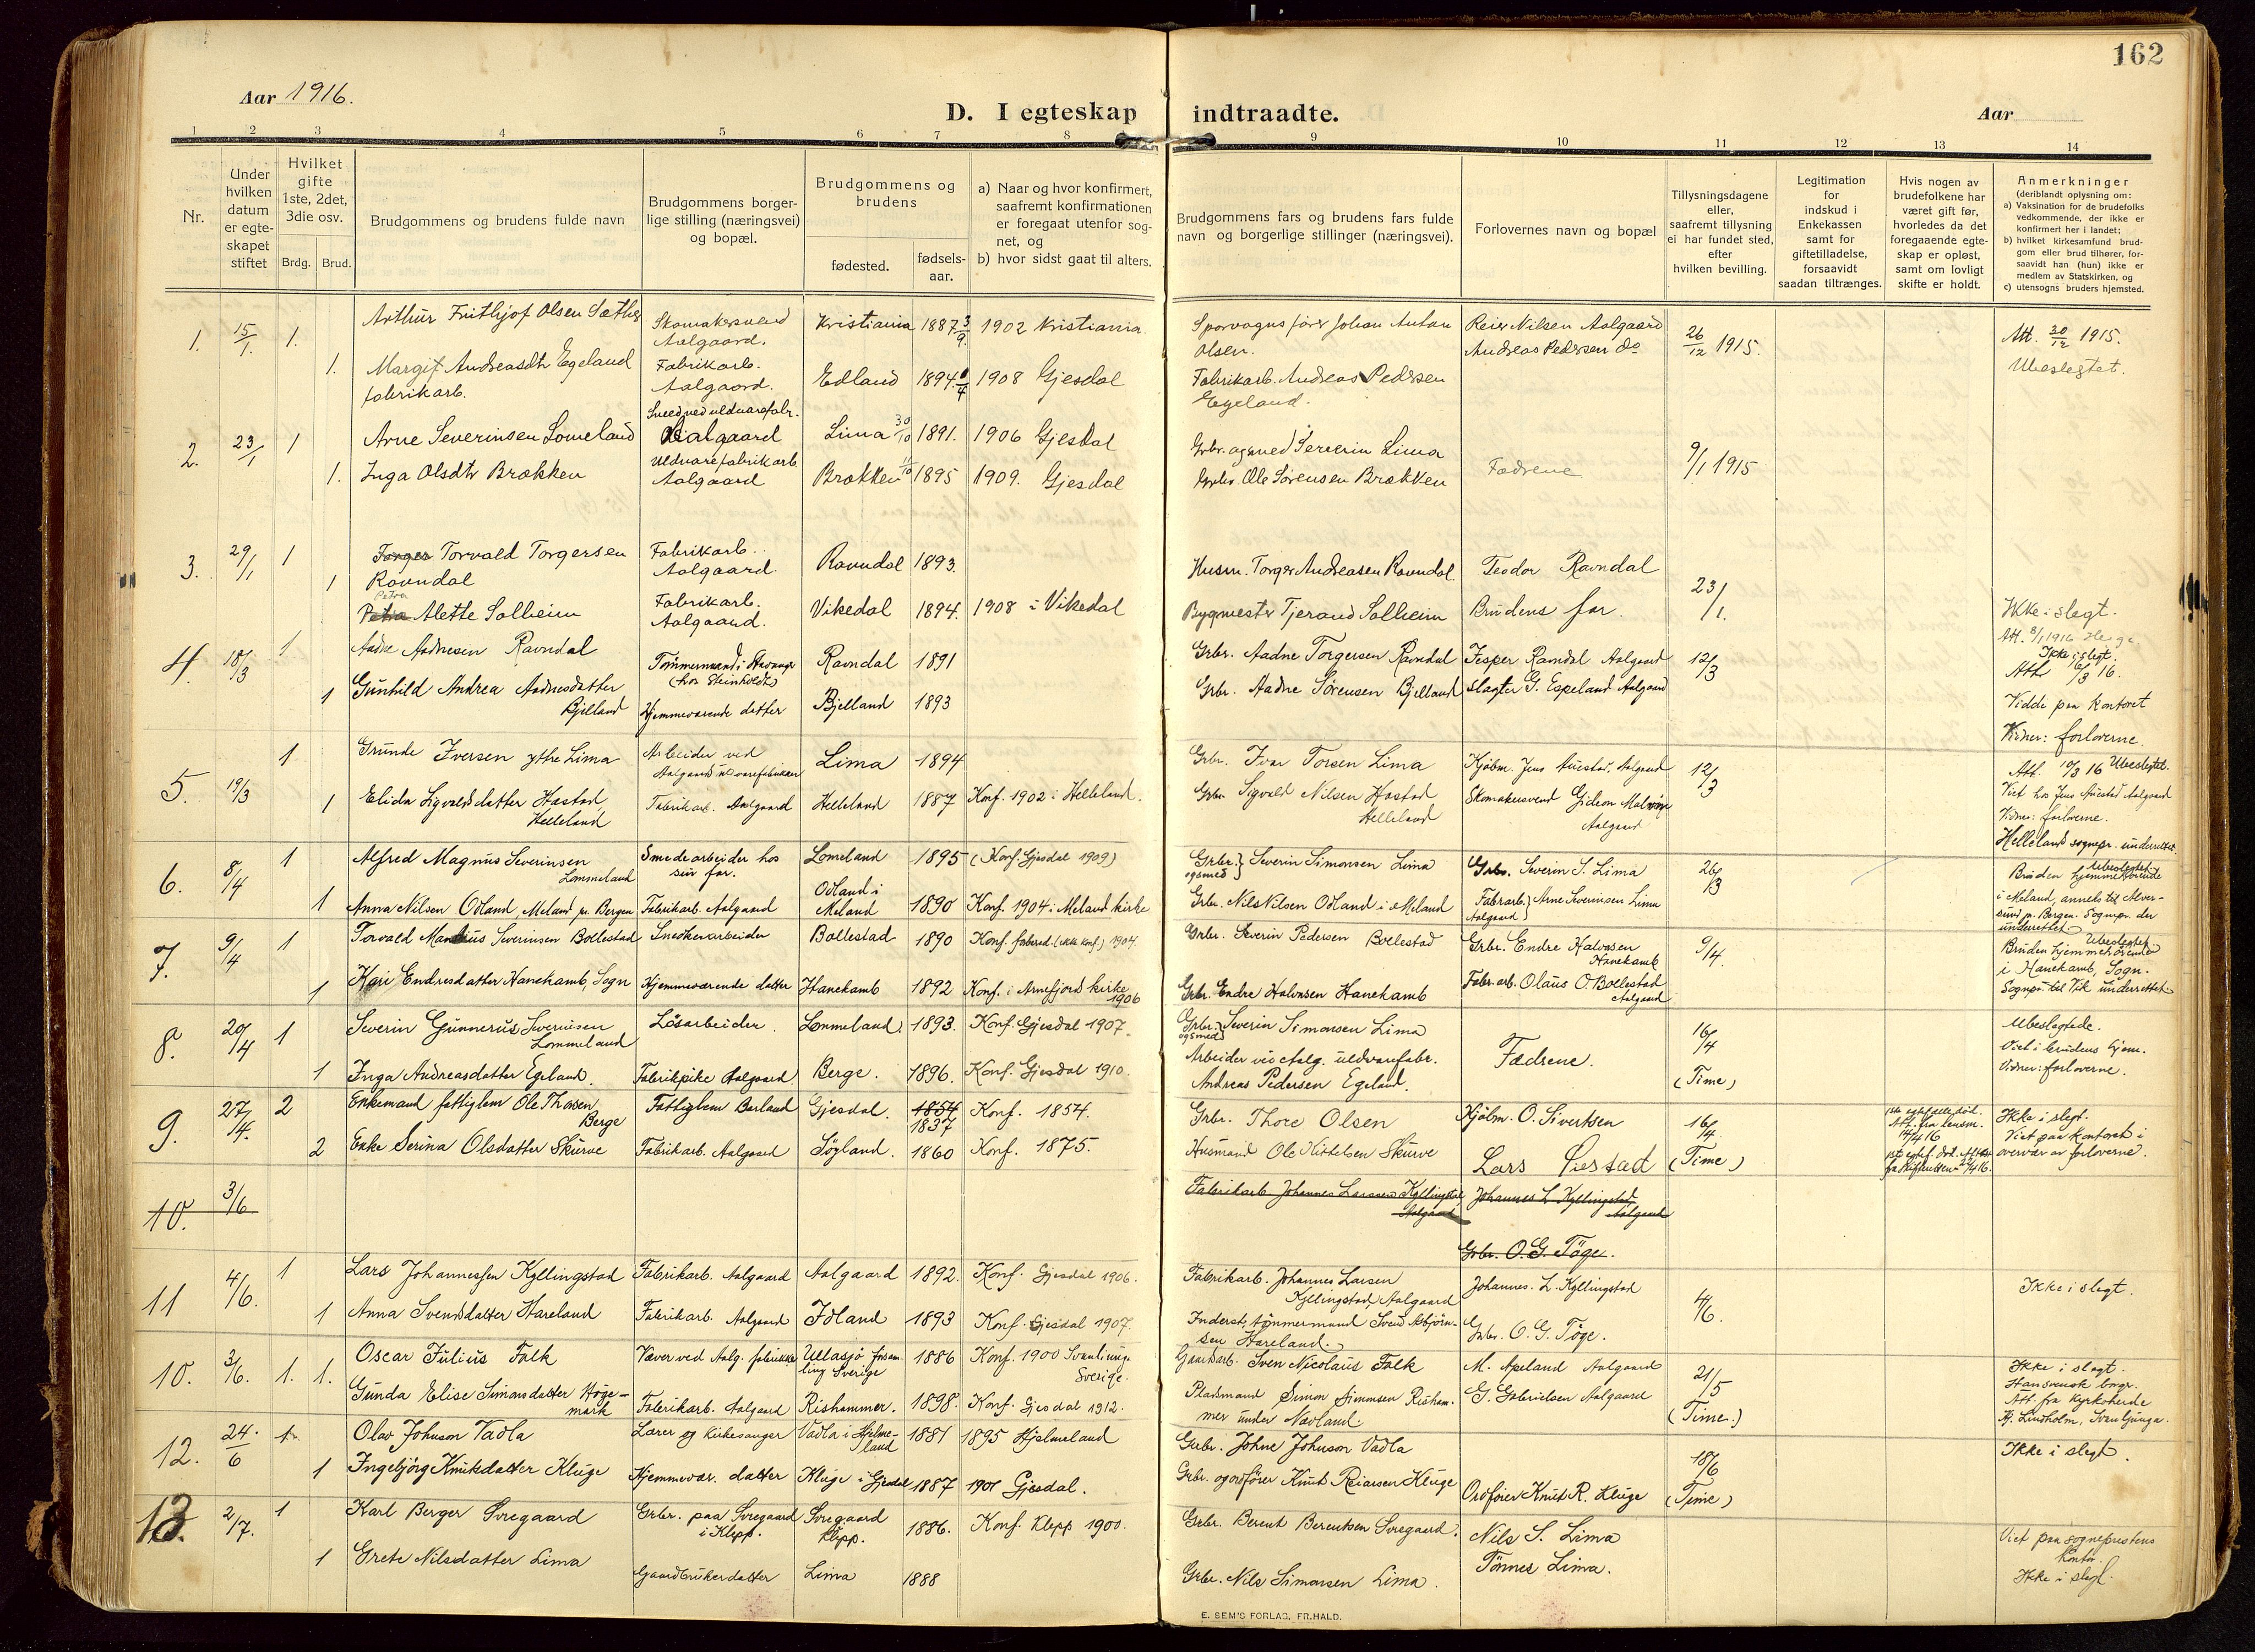 162
Aar 1916.
Aar
D. I egteskap indtraadte.
1 2 3 4 5 6 7 8 9 10 11 12 13 14
Nr.
Under hvilken datum er egteskapet stiftet
Hvilket gifte 1ste, 2det, 3die osv.
Brdg. Brud.
Brudgommens og brudens fulde navn
Brudgommens borger-
lige stilling (næringsvei)
og bopæl.
Brudgommens og
brudens
fødested.
fødsels-
aar.
a) Naar og hvor konfirmert,
saafremt konfirmationen
er foregaat utenfor sog-
net, og
b) hvor sidst gaat til alters.
Brudgommens fars og brudens fars fulde
navn og borgerlige stillinger (næringsvei).
Forlovernes navn og bopæl
Tillysningsdagene
eller,
saafremt tillysning
ei har fundet sted,
efter
hvilken bevilling.
Legitimation
for
indskud i
Enkekassen
samt for
giftetilladelse,
forsaavidt
saadan tiltrænges.
Hvis nogen av
brudefolkene har
været gift før,
hvorledes da det
foregaaende egte-
skap er opløst,
samt om lovligt
skifte er holdt.
Anmerkninger
(deriblandt oplysning om:
a) Vaksination for de brudefolks
vedkommende, der ikke er
konfirmert her i landet;
b) hvilket kirkesamfund brud-
gom eller brud tilhører, for-
saavidt han (hun) ikke er
medlem av Statskirken, og
c) utensogns bruders hjemsted.
1. 15/1. 1. Arthur Frithjof Olsen Sæther Skomakersvend Aalgaard. Kristiania 1887 3/9. 1902 Kristiania Sporvognsfører Johan Anton Olsen. Reier Nilsen Aalgaard 26/12 1915. Att. 30/12 1915.
1. Margit Andreasdtr Egeland fabrikarb. Fabrikarb. Aalgaard. Edland 1894 1908 Gjesdal Fabrikarb. Andreas Pedersen Egeland. Andreas Pedersen do Ubeslegtet.
2. 23/1 1 Arne Severinsen Lomeland Smed ved uldvarefabr. Aalgaard Lima 30/10 1891. 1906 Gjesdal Grbr. og smed Severin Lima Fædrene 9/1 1915
1. Inga Olsdtr Brækken Uldvarefabrikarb. Aalgaard Brækken 11/10 1895 1909. Gjesdal Grbr. Ole Sørensen Brækken
3. 29/1 1 Torger Torvald Torgersen Ravndal Fabrikarb. Aalgaard. Ravndal 1893. Husm. Torger Andreasen Ravndal. Teodor Ravndal 23/1.
1 Petra
Petra Alette Solheim Fabrikarb. Aalgaard. Vikedal 1894. 1908 i Vikedal Bygmester Tjerand Solheim Brudens far. Ikke i slegt. Att. 8/1 1916
4. 18/3 1 Aadne Aadnesen Ravndal Tømmermand i Stavanger (hos Steinholdt) Ravndal 1891 Grbr. Aadne Torgersen Ravndal Jesper Ravndal Aalgaard 12/3 Ikke i slegt. Att 6/3 16.
1 Gunhild Andrea Aadnesdatter Bjelland Hjemmeværende datter Bjelland 1893 Grbr. Aadne Sørensen Bjelland Slagter G. Espeland Aalgaard Vidde paa Kontoret Vidner: forloverne
5. 19/3 1 Grunde Iversen ytre Lima Arbeider ved Aalgaards uldvarefabriker Lima 1894 Grbr. Ivar Torsen Lima Kjøbm. Jens Auestad, Aalgaard 12/3 Att. 10/3 16 Ubeslegtet.
1 Elida Sigvaldsdatter Hastad Helleland Fabrikarb. Aalgaard Helleland 1887 Konf. 1902 i Helleland. Grbr Sigvald Nilsen Hastad Helleland Skomakersvend Gideon Malmin Aalgaard Viet hos Jens Auestad Aalgaard Vidner: forloverne. Helleland sognepr. underrettet
6. 8/4 1 Alfred Magnus Severinsen Lommeland Smedearbeider hos sin far. Lomeland 1895 (Konf. Gjesdal 1909) Grbr. og smed} Severin Simonsen Lima Grbr. Severin S. Lima 26/3 Ubeslegtet
1 Anna Nilsen Odland, Meland pr. Bergen Fabrikarb. Aalgaard Odland i Meland 1890 Konf. 1904 i Meland kirke Grbr. Nils Nilsen Odland i Meland Fabrarb. Aalgaard} Arne Severinsen Lima Bruden hjemmehørende i Meland, anneks til Alver-
sund pr. Bergen. Sognepr. der underrettet.
7. 9/4 1 Torvald Mandius Severinsen Bollestad Snedkerarbeider Bollestad 1890 Konf. forbered. (ikke konf.) 1904. Grbr. Severin Pedersen Bollestad Grbr. Endre Halvorsen Hanekamb 9/4. Ubeslegtet
1 Kari Endresdatter Hanekamb, Sogn Hjemmeværende datter Hanekamb 1892 Konf. i Arnefjord kirke 1906 Grbr. Endre Halvorsen Hanekamb Fabr. arb. Olaus O. Bollestad Aalgaard Bruden hjemmehørende i Hanekamb, Sogn. Sognepr. til Vik underrettet
8. 20/4 1 Severin Gunnerius Severinsen Lommeland Løsarbeider. Lommeland. 1893. Konf. Gjesdal 1907. Grbr. og smed} Severin Simonsen Lima Fædrene. 16/4 (Time) Ubeslegtede.
1 Inga Andreasdatter Egeland. Fabrikpike Aalgaard. Berge. 1896. Konf. Gjesdal 1910. Arbeider ved Aalg. uldvarefabr. Andreas Pedersen Egeland. Viet i brudens hjem. Vidner: forloverne.
9. 27/4. 2 Enkemand fattiglem Ole Thorsen Berge Fattiglem Berland Gjesdal. 1854 1837 Konf. 1854. Grbr. Thore Olsen Kjøbm. O. Sivertsen 16/4 (Time) 1ste egtefælle død. Att. fra lensm. 14/4 16 Ikke i slegt.
2 Enke Serina Olsdatter Skurve Fabrikarb. Aalgaard Søyland. 1860 Konf. 1875. Husmand Ole Kittelsen Skurve Lars Siestad Viet paa kontoret i overvær av forloverne.
10. 3/6 Fabrikarb. Johannes Larssen Kyllingstad, Aalgaard Johannes L. Kyllingstad, Aalgaard
Grbr. O. G. Tøge.
11 4/6. 1 Lars Johannessen Kyllingstad Fabrikarb. Aalgaard Aalgaard 1892. Konf. Gjesdal 1906. Fabrikarb. Johannes Larsen Kyllingstad, Aalgaard Johannes. L. Kyllingstad 4/6. Ikke i slegt.
1 Anna Svendsdatter Hareland Fabrikarb. Aalgaard Idland 1893 Konf. Gjesdal 1907. Inderst, tømmermand Svend Asbjørn-
sen Hareland. Grbr. O. G. Tøge.
10. 3/6. 1. 1. Oscar Julius Falk Væver ved Aalg. fabrikker Ullasjö försam-
ling Sverige 1886 Konf. 1900 Svanljunga Sverige. Gaardarb. Sven Nicolaus Falk M. Apeland Aalgaard 21/5 (Time.) Ikke i slegt.
Gunda Elise Simonsdatter Høge-
mark Fabrikarb. Aalgaard Rishammer. 1898. Konf. Gjesdal 1912. Pladsmand Simon Simonsen Risham-
mer under Nævland. G. Gabrielsen Aalgaard Han svensk borger. Att fra Kyrkoherde Hj. Lindholm, Svanljunga.
12. 24/6 1. Olav Johnson Vadla Lærer og kirkesanger Vadla i Hjelme-
land 1881 1895 Hjelmeland Grbr. Johne Johnson Vadla 18/6 (Time) Ikke i slegt.
1 Ingebjørg Knutsdatter Kluge Hjemmevær. datter Kluge i Gjesdal 1887 1901 Gjesdal. Grbr. og ordfører Knut Reiarsen Kluge Ordfører Knut R. Kluge
13. 2/7. 1 Karl Berger Sveegaard Grbr. paa Sveegaard i Klepp. Sveegaard Klepp. 1886. Konf. Klepp 1900. Grbr. Berent Berentsen Sveegaard. Nils S. Lima Viet paa sogneprestens kontor.
1 Grete Nilsdatter Lima Gaardbrukerdatter Lima 1888 Grbr. Nils Simonsen Lima. Tønnes Lima. Ikke i slegt.
E. SEM'S FORLAG, FR.HALD.